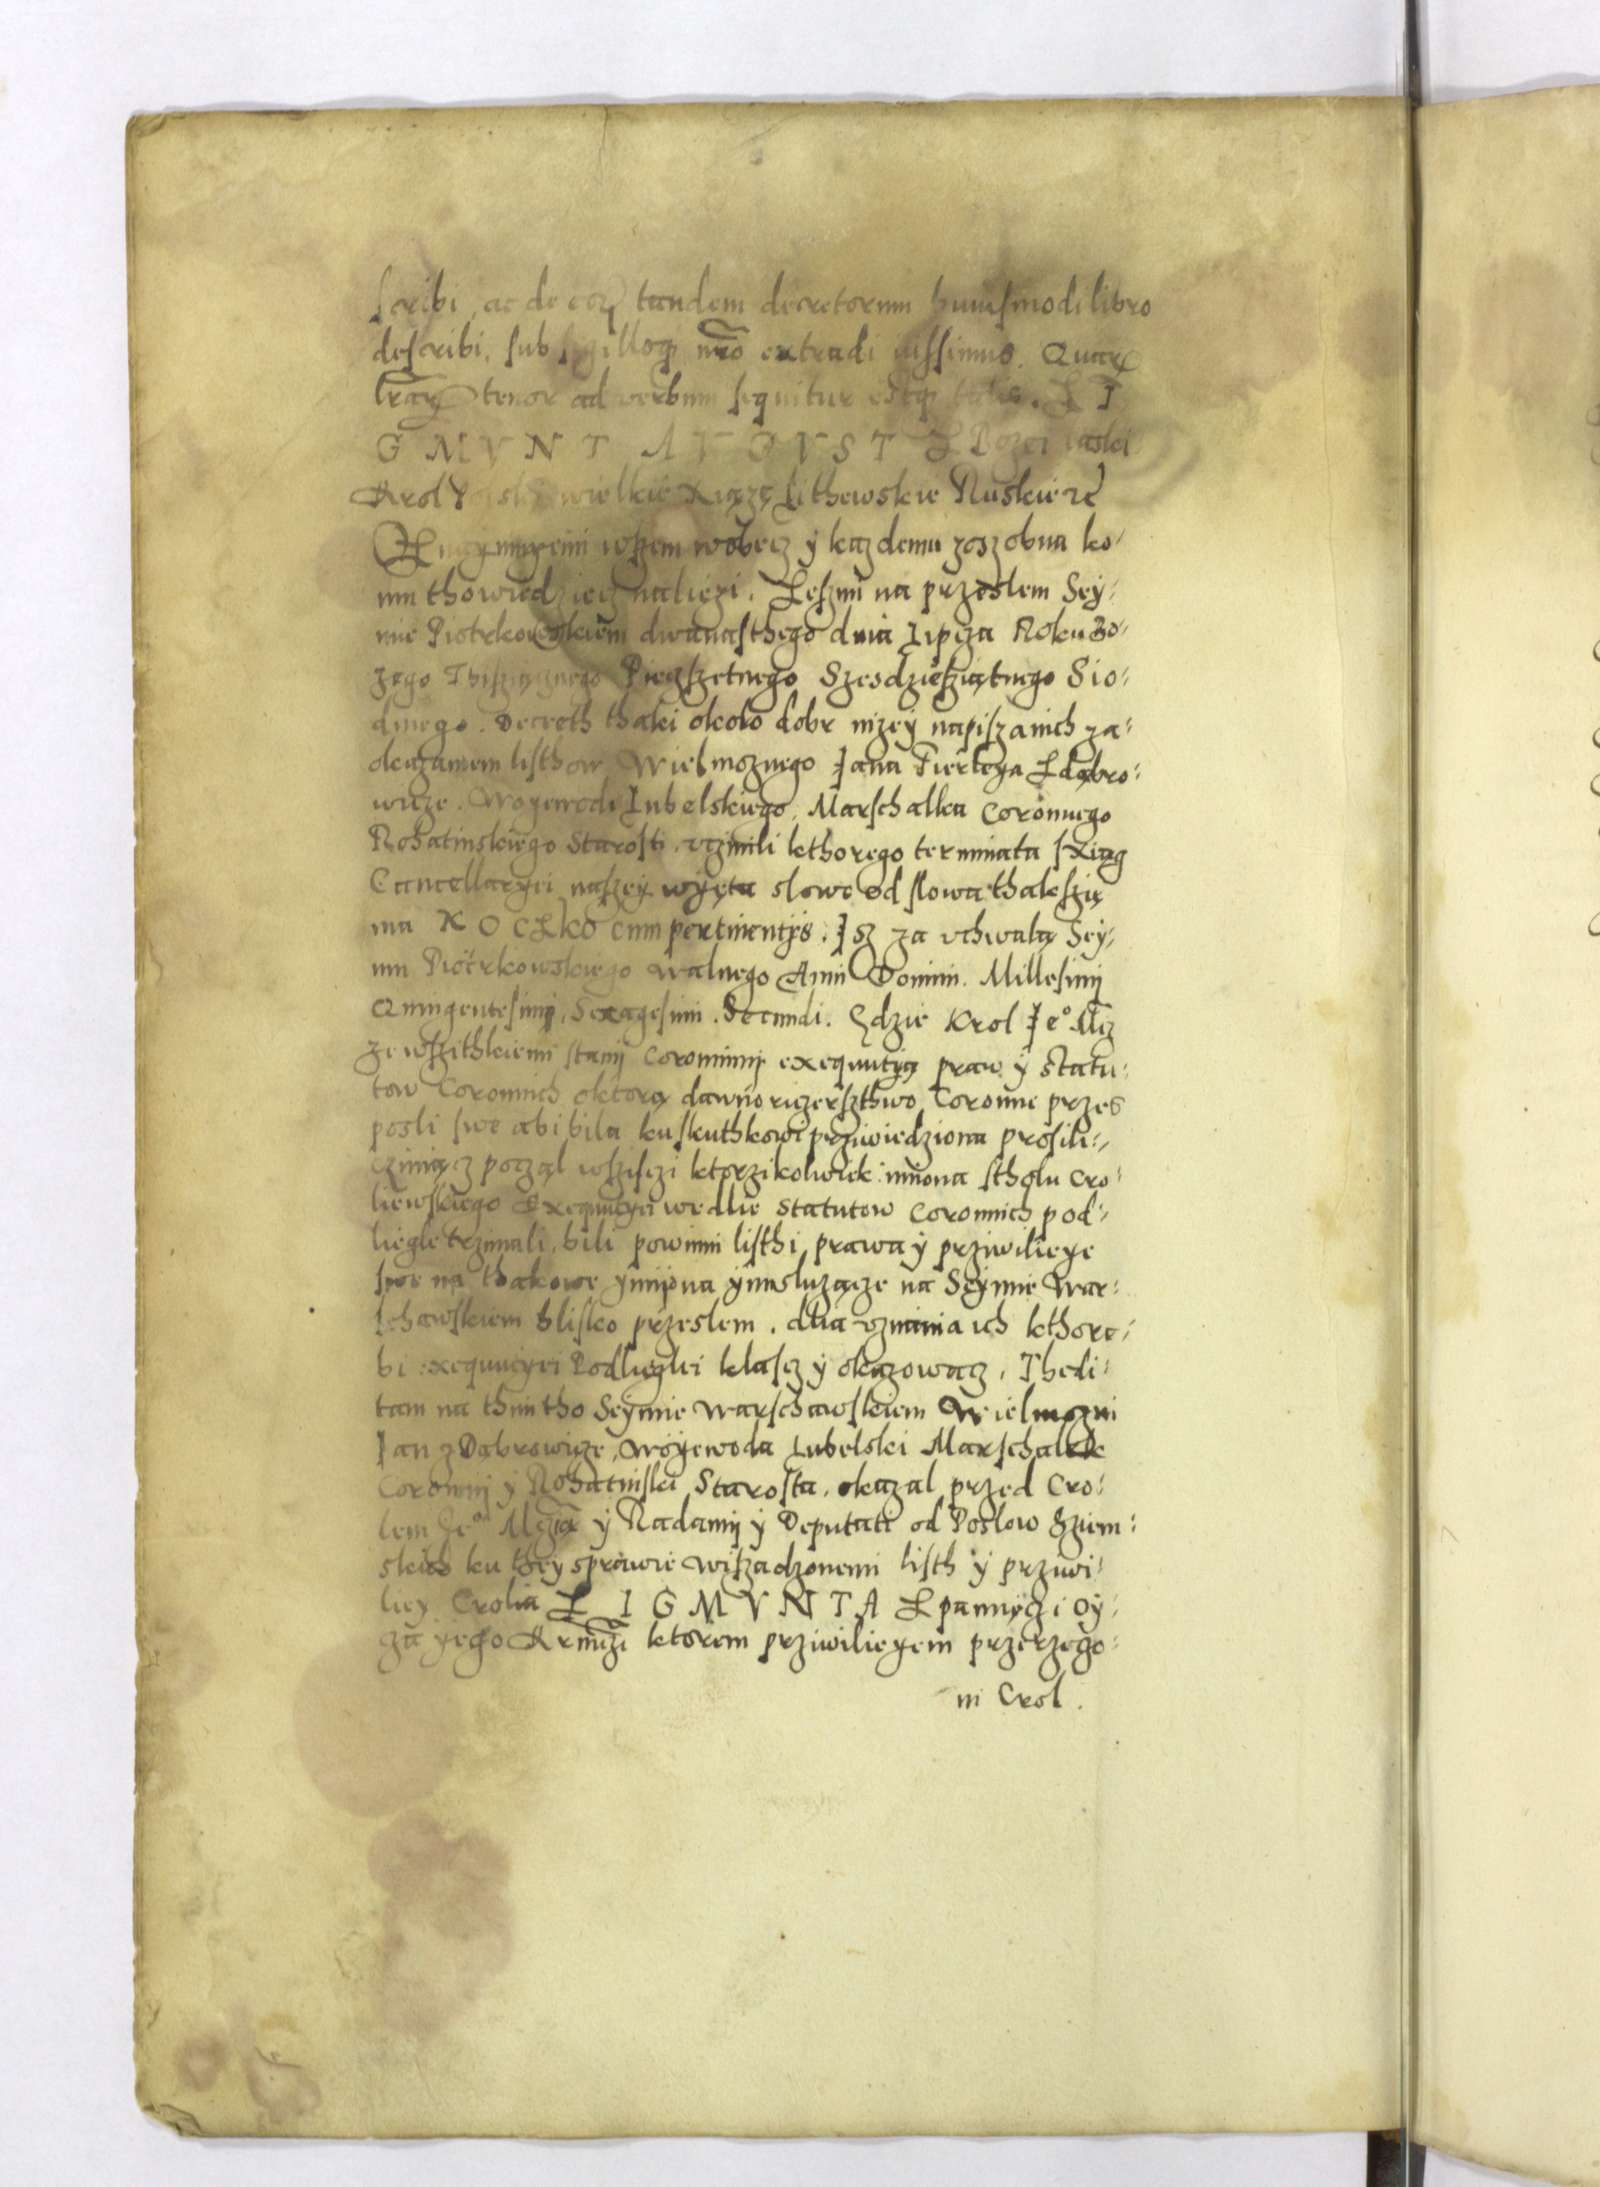 scribi, ac de eoꝝ tandem decretorum huiusmodi libro
describi, sub sigilloqȝ nr̃o extradi iussimus. Quarꝝ
lr̃arꝝ tenor ad verbum sequitur estqȝ talis. Z I
G M V N T A V G V S T Z Bozei laski
Krol Polski wielkie Xiąze Lithewskie Ruskie ꝛc̃
wszem wobecz ÿ kazdemu zoszobna ko⸗
mu tho wiedziecz naliezi. Zeszmi na przeslem Sey⸗
mie Piotrkowskiem dwanasthego dnia Lipcza Roku Bo⸗
zego Thisziącznego Pieczszetnego Szesdziesziątnego Sio⸗
dmego. Decreth thaki około dobr nizeÿ napiszanich za⸗
okazaniem listhow Wielmoznego Jana Fierleya Z dąbro⸗
wicze. Woyewodi Lubelskiego, Marschalka Coronnego
Rohatinskiego Starosti, vczinili kthorego terminata s Xiąg
Cancellaryei naszeÿ wyęta slowo od slowa thak szię
ma K O C Z K O cum pertinentijs. Jsz za vchwalą Seÿ⸗
mu Piotrkowskiego walnego Anni Domini. Millesimi
Quingentesimi, Sexagesimi. Secundi. Gdzie Krol Je° Mcz
ze wszithkiemi stanij Coronnimi exequutią praw ÿ statu⸗
tow Coronnich oktorą dawno riczersthwo Coronne przes
posli swe abi bila ku skuthkowi prziwiedziona prosili⸗
cziniącz począl wsziszczi ktorzikolwiek imiona stholu Cro⸗
liewskiego Exequutyei wedlie Statutow Coronnich pod⸗
liegle trzimali, bili powinni listhi, prawa ÿ prziwilieye
swe na thakowe ymijona ÿm sluzącze na Seymie War⸗
schawskiem blisko przeslem. dlia vznania ich kthore⸗
bi exequutyei Podliegli klascz ÿ okazowacz. Thedi⸗
tam na thimtho Seÿmie Warschawskiem Wielmozni
Jan z Dąbrowicze, Woÿewoda Lubelski Marschalek
Coronnij ÿ Rohatinski Starosta, okazal przed Cro⸗
lem Je° Mczią ÿ Radamij ÿ Deputati od Poslow Sziem⸗
skich ku theÿ sprawie wiszadzonemi listh ÿ prziwi⸗
lieÿ Crolia Z I G M V N T A Z pamięczi oÿ⸗
cza yego Kr mczi ktorem prziwilieyem przerzego⸗
ni Crol.